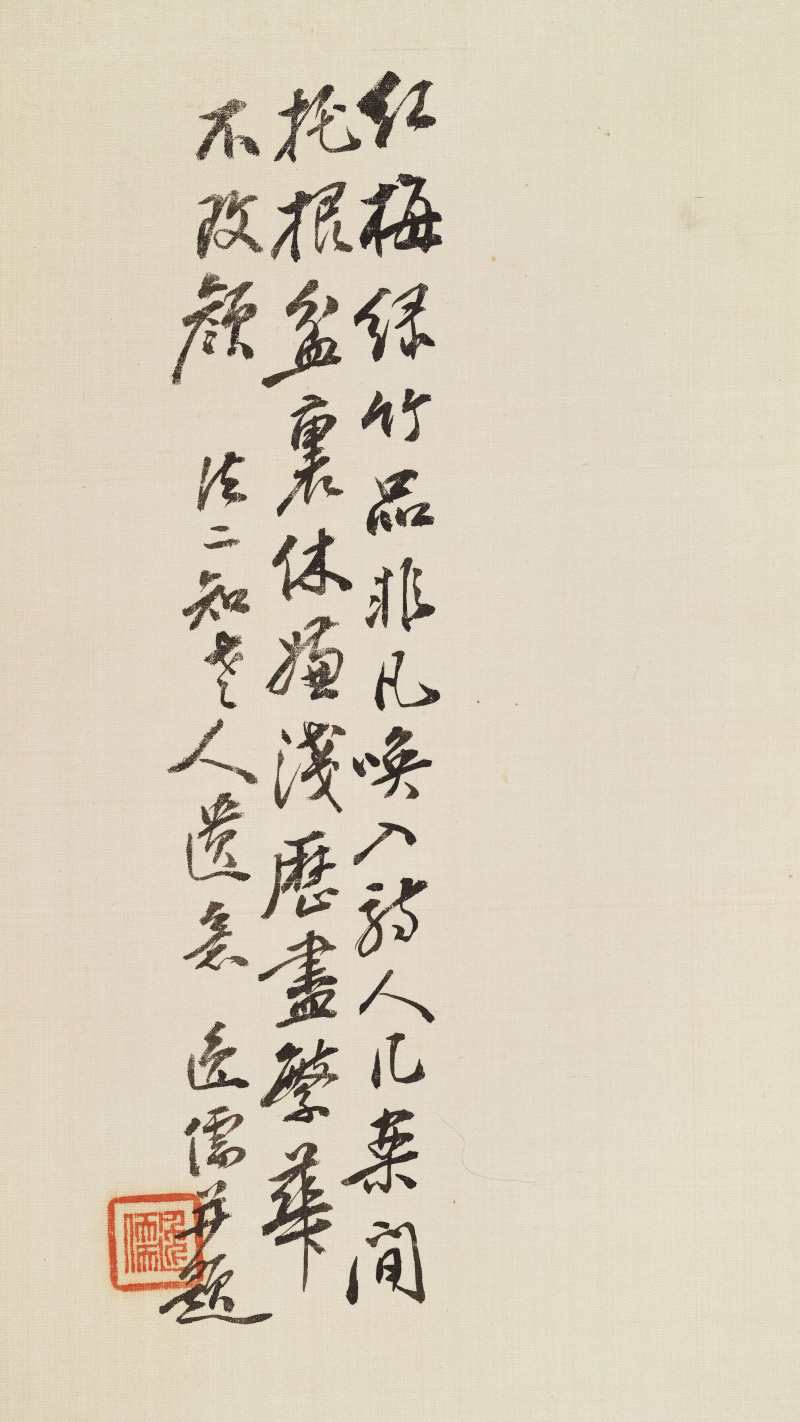 紅梅綠竹品非凡喚入詩人几案間
托根盆裏休嫌淺歷盡繁華
不改顏 法二知老人遺意 儒并題